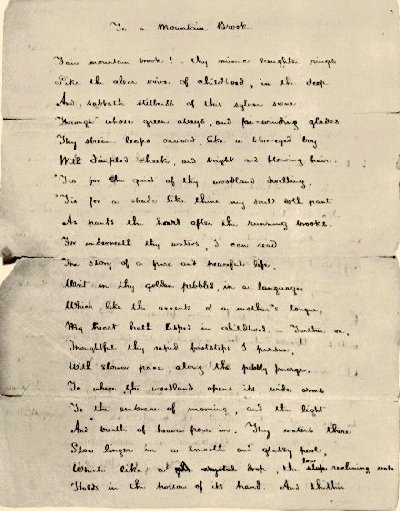 To a Mountain Brook
Fair mountain brook! thy mimic laughter rings
Like the clear voice of childhood, in the deep
And sabbath stillness of this sylvan scene
Through whose green alleys, and far-winding glades
Thy stream leaps onward like a blue-eyed boy
With dimpled cheek, and bright and flowing hair.
'Tis for the quiet of thy woodland dwelling,
'Tis for a shade like thine my soul doth pant
As pants the heart after the running brooks.
For underneath thy waters, I can read
The story of a pure and peaceful life,
Writ in thy golden pebbles, in a language
Which, like the accents of a mother's tongue,
My heart hath lisped in childhood. Further on,
Thoughtful thy rapid footsteps I pursue,
With slower pace, along the pebbly marge,
To where the woodland opens its wide arms
To the embrace of morning, and the light
And breath of heaven from on. Thy waters there
Slow linger in a smooth and glassy pool,
Which like a crystal drop, the low reclining vale
Holds in the hollow of its hand. And thither